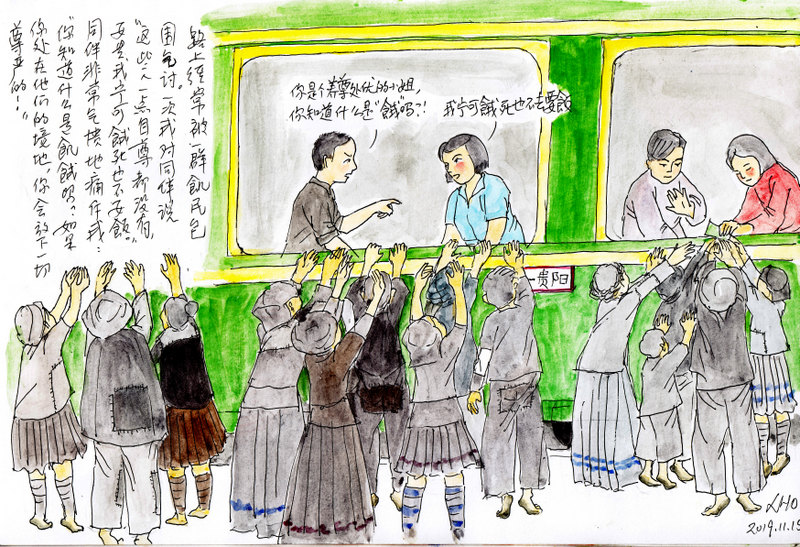 路上经常被一群飢民包
围乞讨。一次我对同伴说
"这些人一点自尊都没有,
要是我宁可餓死也不要飯"
同伴非常气愤地痛斥我:
"你知道什么是飢餓吗?如果
你处在他们的境地,你会放下一切
尊严的!"
你是个养尊处优的小姐,
你知道什么是"餓"吗?!
我宁可餓死也不去要飯
—贵阳
LHO
2019.11.15